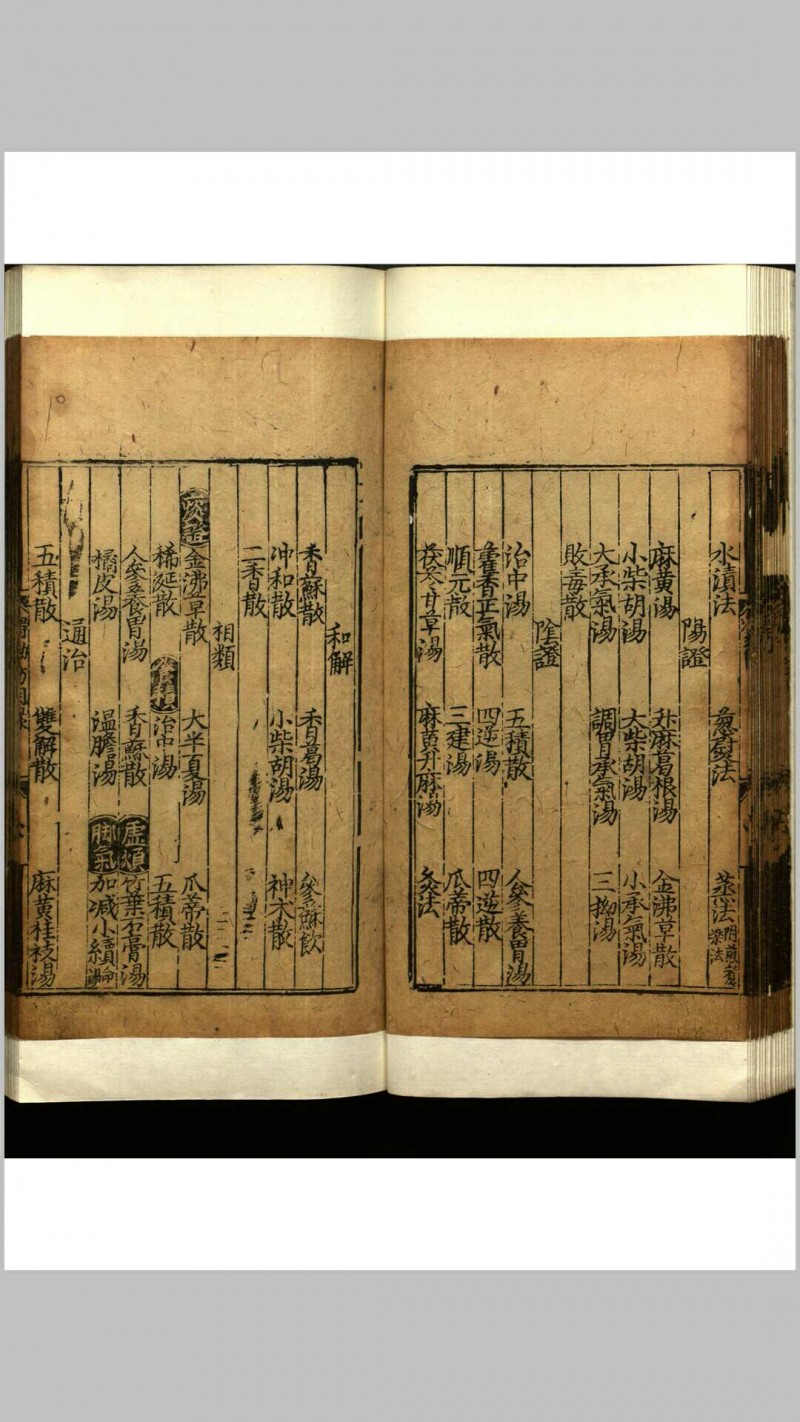 水漬法 葱熨法 蒸法
陽證
麻黃湯 升麻葛根湯 金沸草散
小柴胡湯 大柴胡湯 小承氣湯
大承氣湯 調胃承氣湯 三拗湯
敗毒散
隂證
治中湯 五積散 人參養胃湯
藿香正氣散 四逆湯 四逆散
順元散 三建湯 瓜蒂散
茯苓甘草湯 麻黃升麻湯 灸法
和解
香蘇散 香葛湯 參蘇飲
冲和散 小柴胡湯 神术散
二香散
相類
痰證 金沸草散 大半夏湯 瓜蒂散
稀涎散 治中湯 五積散
人參養胃湯 香蘇散 虛煩 竹葉石膏湯
橘皮湯 温膽湯 脚氣 加减小續命
通治
五積散 雙解散 麻黃桂枝湯